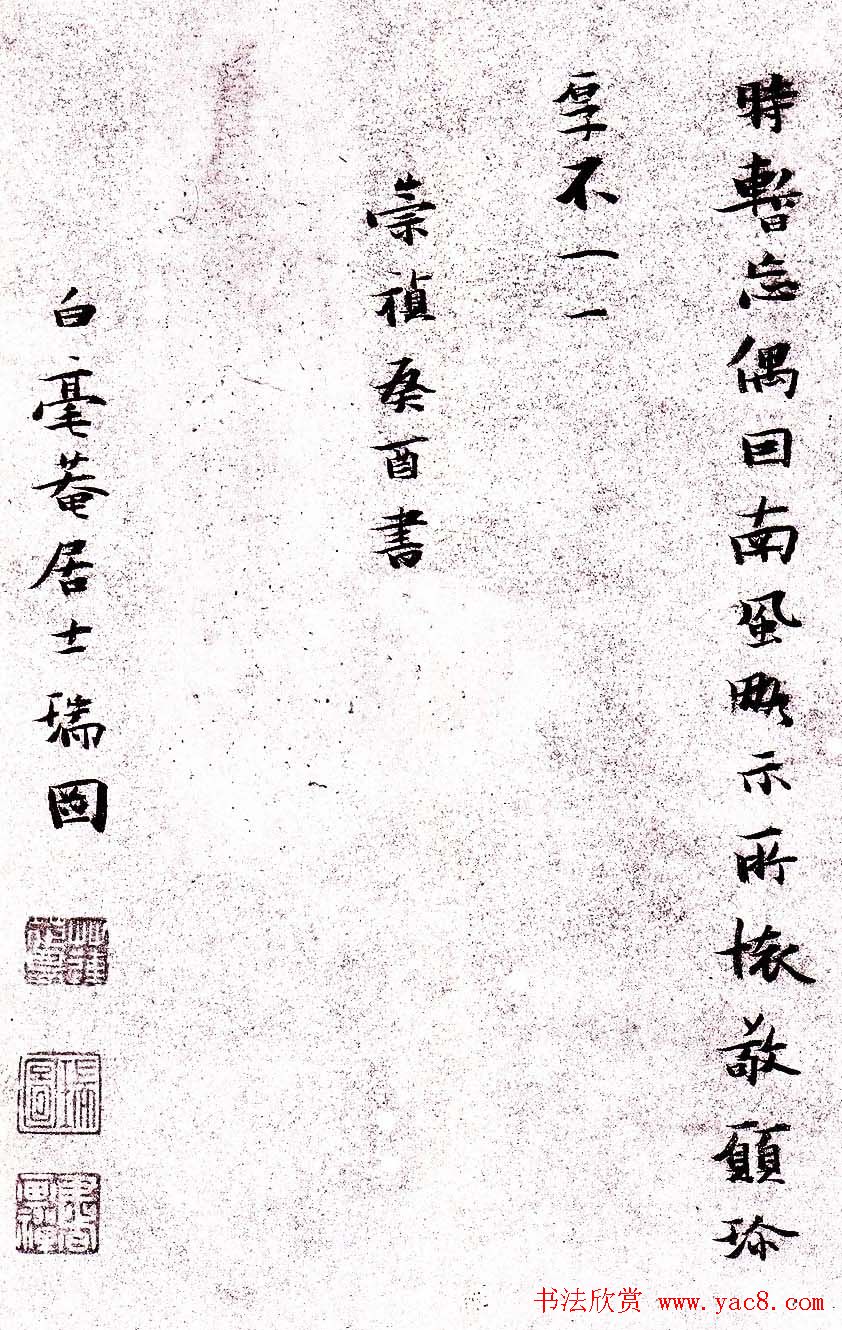 時暫忘偶因南風略示所懷敬願珍
厚不一一
崇禎癸酉書
白毫菴居士瑞圖
瑞圖
书法欣赏 www.yac8.com